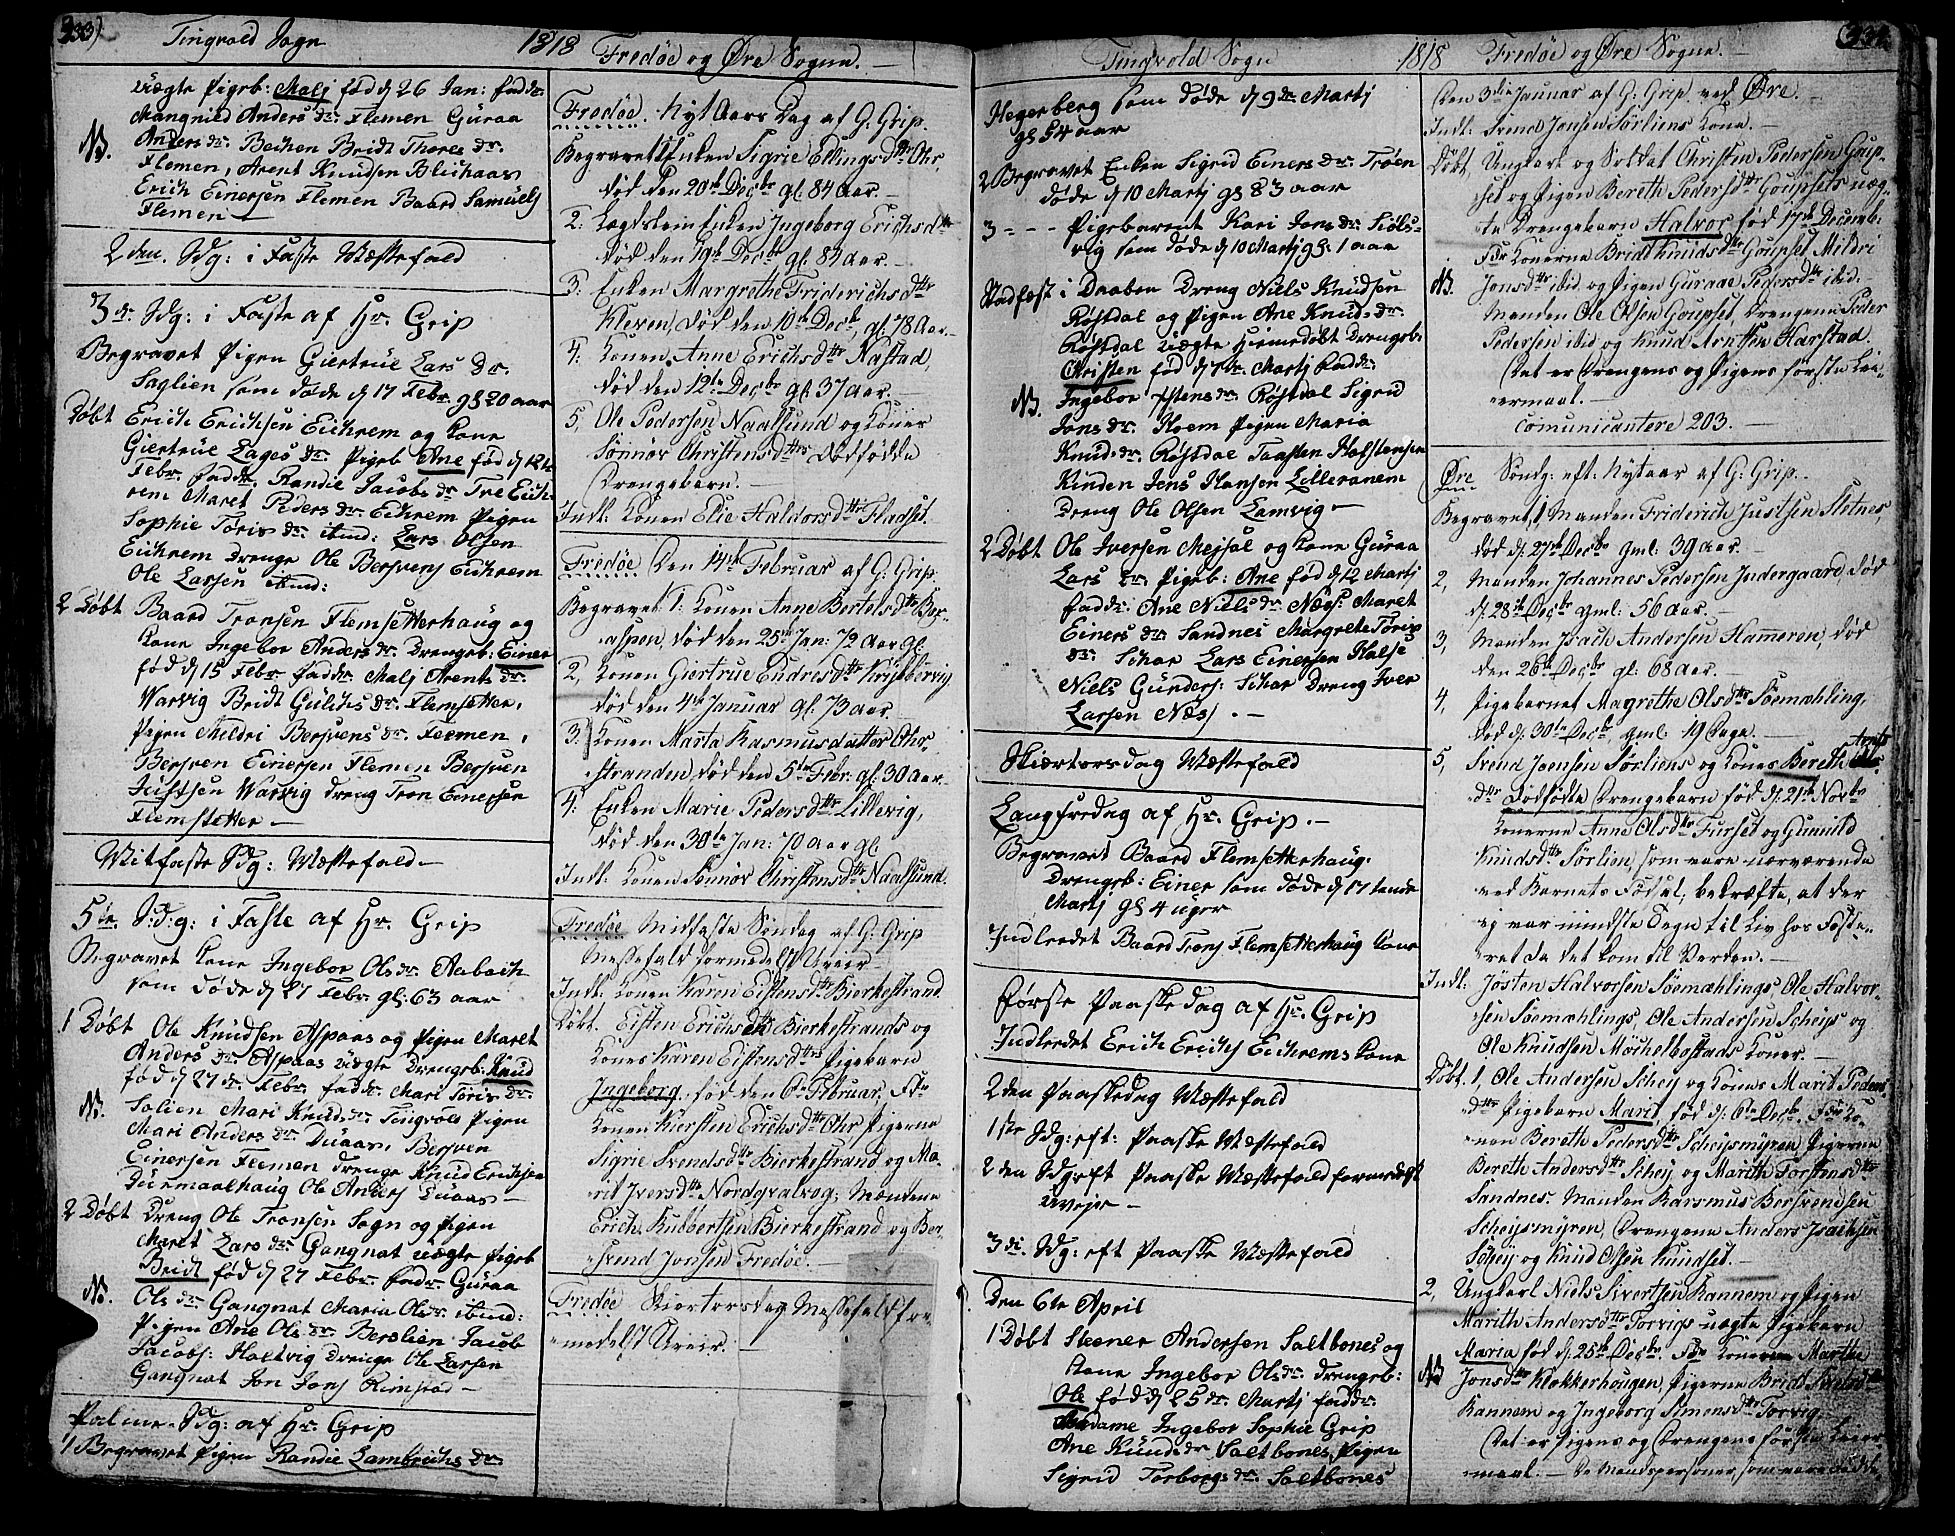 333)
Tingvold Sogn
1818
Fredøe og Øre Sogne. —
uægte Pigeb: Malj fød d 26 Jan: fadd:
Mangnild Anders dr: Flemen Guraa
Anders dr: Bechen Bridt Thores dr:
NB.
Flemen, Arent Knudsen Blichaas
Erich Einersen Flemen Baard Samuels
Flemen —
2den Sdg: i Faste Messefald
3de Sdg: i Faste af Hr. Grip
Begravet Pigen Giertrue Lars dr:
Saglien som døde d 17 Febr. gl 20 aar
Døbt Erich Erichsen Eichrem og Kone
Giertrue Lages dr: Pigeb Ane fød d 12te
Febr. fadd: Randie Jacobs dr Tre Eich-
rem Maret Peders dr: Eichrem Pigen
Sophie Toris dr: ibind: Lars Olsen
Eichrem Drenge Ole Bersvens Eichrem
Ole Larsen ibind:
2 Døbt Baard Tronsen Flemsetterhaug og
Kone Ingebor Anders dr: Drengeb: Einer
fød d 15 Febr. fadd: Malj Arents dr:
Warvig Bridt Gulichs dr: Flemsetter,
Pigen Mildri Bersvens dr: Flemen,
Bersven Einersen Flemen Bersven
Justsen Warvig Dreng Tron Einersen
Flemsetter —
Mitfaste Sdg: Messefald —
5te Sdg: i Faste af Hr. Grip
Begravet Kone Ingebor Ols dr: Aabach
som døde d 27 Febr. gl: 63 aar
1 Døbt Ole Knudsen Aspaas og Pigen Maret
Anders dr: Aspaas uægte Drengeb: Knud
fød d 27 de Febr. fadd: Mari Toris dr:
NB.
Solien Mari Knuds dr: Tingvold Pigen
Mari Anders dr: Duaas, Bersven
Einersen Flemen Drenge Knud Erichsen
Durmaalhaug Ole Anders Duaas —
2 Døbt Dreng Ole Tronsen Sogn og Pigen
Maret Lars dr: Gangnat uægte Pigeb
Bridt fød d 27 Febr. fadr: Guraa
NB.
Ols dr: Gangnat Maria Ols dr: ibind:
Pigen Ane Ols dr: Berslien Jacob
Jacobs: Holtvig Drenge Ole Larsen
Gangnat Jon Jons Rimstad —
Palme-Sdg: af Hr. Grip
1 Begravet Pigen Randie Lambrichs dr:
Fredøe. Nyt Aars Dag af G: Grip.
Begravet 1 Enken Sigrie Ellingsdttr Ohr,
død den 20de Decbr gl. 84 aar. —
2: Lægdslem Enken Ingeborg Erichsdttr
død den 19de Decbr gl. 84 aar. —
3: Enken Margrethe Friderichsdttr
Kleven, død den 10de Decbr, gl. 78 Aar. —
4: Konen Anne Erichsdttr Nastad,
død den 12te Decbr gl. 37 aar. —
5, Ole Pedersen Naalsund og Kones
Sønnøv Christensdttrs dødfødde
Drengebarn. —
Indl: Konen Elie Haldorsdttr Fladset.
Fredøe Den 14de Februar af G: Grip.
Begravet 1: Konen Anne Bertelsdttr Ber-
aspen, død den 25de Jan: 72 Aar gl.
2, Konen Giertrue Endresdttr
død den 4de Januar gl. 73 aar.
3. Konen Marta Rasmusdatter Ohr-
stranden, død den 5te Febr. gl. 30 aar. —
4: Enken Marie Pedersdttr Lillevig,
død den 30te Jan: 70 aar gl
Indl: Konen Sønnøv Christensdttr Naalsund.
Fredøe Midfaste Søndag af G: Grip
Messefald formedelst Uveir. —
Indl: Konen Karen Eistensdttr Bierkestrand.
Døbt. Eisten Erichsen Bierkestrands og
Kones Karen Eistensdttrs Pigebarn
Ingeborg, fød den 6te Februar, Fdr
Konen Kiersten Erichsdttr Ohr, Pigerne
Sigrie Svendsdttr Bierkestrand og Ma-
rit Iversdttr Nordgvalvog; Mændene
Erich Kubbertsen Bierkestrand og Ber-
svend Jonsen Fredøe. —
Fredøe Skiertorsdag Messefald for-
medelst Uveir. —
Tingvold Sogn
1818
Fredøe og Øre Sogne. —
334
Hegerberg som døde d 9de Martj
gl 54 aar
2 Begravet Enken Sigrid Einers dr: Trøen
døde d 10 Martj gl 83 aar
3 - - - Pigebarnet Kari Jons dr: Siøls-
vig som døde d 10 Martj gl: 1 aar
Stadfæst i Daaben Dreng Niels Knudsen
Røstdal og Pigen Ane Knuds dr:
Røstdal uægte Hiemedøbt Drengeb:
Christen fød d 7de Martj fadd:
NB. Ingebor Istens dr: Røstdal Sigrid
Jons dr: Hoem Pigen Maria
Knuds dr: Røstdal Taasten Holstensen
Kinden Jens Hansen Lilleranem
Dreng Ole Olsen Lamvig —
2 Døbt Ole Iversen Mejsal og Kone Guraa
Lars dr: Pigeb: Ane fød d 12 Martj
fadd: Ane Niels dr: Næss Maret
Einers dr: Sandnes Margrete Toris
dr: Sikar Lars Einersen Halse
Niels Gunders: Sikar Dreng Iver
Larsen Næs. —
Skiertorsdag Messefald
Langfredag af Hr. Grip. —
Begravet Baard Flemsetterhaug:
Drengeb: Einer som døde d 17tende
Martj gl 4 uger
Indleedet Baard Trons Flemsetterhaug Kone
Første Paaskedag af Hr. Grip
Indleedet Erich Erichs Eichrems Kone
2den Paaskedag Messefald
1ste Sdg: eft: Paaske Messefald
2den Sdg eft Paaske Messefald formedelst
Uvejr —
3die Sdg: eft Paaske Messefald
Den 6te April
1 Døbt Steener Andersen Saltbones og
Kone Ingebor Ols dr: Drengeb:
Ole fød d 25 de Martj fadd:
Madame Ingebor Sophie Grip
Ane Knuds dr Saltbones, Pigen
Sigrid Torborgs dr: Saltbones
Den 3die Januar af G: Grip ved Øre. —
Indl: Svend Jonsen Sørliens Kone. —
Døbt, Ungkarl og Soldat Christen Pedersen Goup-
set og Pigen Bereth Pedersdttr Goupsets uæg-
te Drengebarn Halvor fød 17de Decemb.
Fdr Konerne Bridt Knudsdttr Goupset, Mildri
NB. Jonsdttr ibid. og Pigen Guraae Pedersdttr ibid. —
Manden Ole Olsen Goupset, Drengene Peder
Pedersen ibid og Knud Arntsen Harstad.
Det er Drengens og Pigens første Lei-
ermaal. —
Comunicantere 203. —
Øre Søndg: eft: Nytaar af G: Grip. —
Begravet, 1, Manden Friderich Justsen Stetnes,
død d. 27de Decbr gml: 39 aar. —
2, Manden Johannes Pedersen Indergaard, død
d. 28de Decbr gml: 56 aar. —
3, Manden Isach Andersen Hammeren, død
den 26de Decbr gl: 68 aar. —
4, Pigebarnet Magrethe Olsdttr Søemæhling,
død d. 30te Decbr gml: 19 Dage. —
5, Svend Joensen Sørliens og Kones Bereth Arnts
dttr Dødfødte Drengebarn fød d. 21de Novbr
Konerne Anne Olsdttr Furset og Gunnild
Knudsdttr Sørlien, som vare nærværende
ved Barnets Fødsel, bekræfte, at der
ej var mindste Tegn til Liv hos Foste-
ret da det kom til Verden. —
Indl: Jøsten Halvorsen Søemæhlings, Ole Halvor-
sen Søemæhlings, Ole Andersen Scheys og
Ole Knudsen Møchelbostads Koner. —
Døbt. 1, Ole Andersen Schey og Kones Marit Peders-
dttr Pigebarn Marit, fød d. 6te Decbr. Fdr Ko-
nen Bereth Pedersdttr Scheysmyren, Pigerne
Bereth Andersdttr Schey og Marith Torstensdttr
Sandnes. Manden Rasmus Bersvendsen
Scheysmyren, Drengene Anders Isachsen
Schey og Knud Olsen Knudset. —
2, Ungkarl Niels Sivertsen Kannem og Pigen
Marith Andersdttr Torvigs uægte Pigebarn
Maria fød d. 25de Decbr. Fdr Konerne Marthe
NB Jonsdttr Klokkerhougen, Pigerne Bridt
Kannem og Ingeborg Simensdttr Torvig.
Det er Pigens og Drengens første Leier-
maal. — De Mandspersoner, som vare Fadde-